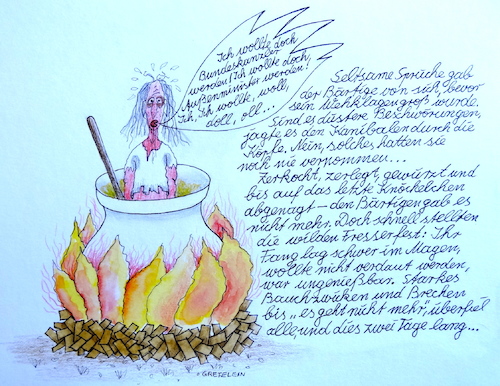 Ich wollte doch
Bundeskanzler
werden! Ich wollte doch,
Außenminister werden!
Ich, ich wollte, woll,
doll, oll...
Seltsame Sprüche gab
der Bärtige von sich, bevor
sein Wehklagen groß wurde.
Sind es düstere Beschwörungen,
jagte es den Kanibalen durch die
Köpfe. Nein, solches hatten sie
noch nie vernommen...
Zerkocht, zerlegt, gewürzt und
bis auf das letzte Knöchelchen
abgenagt – den Bärtigen gab es
nicht mehr. Doch schnell stellten
die wilden Fresser fest: Ihr
Fang lag schwer im Magen,
wollte nicht verdaut werden,
war ungenießbar. Starkes
Bauchzwicken und Brechen
bis „es geht nicht mehr", überfiel
alle, und dies zwei Tage lang...
GRETELEIN